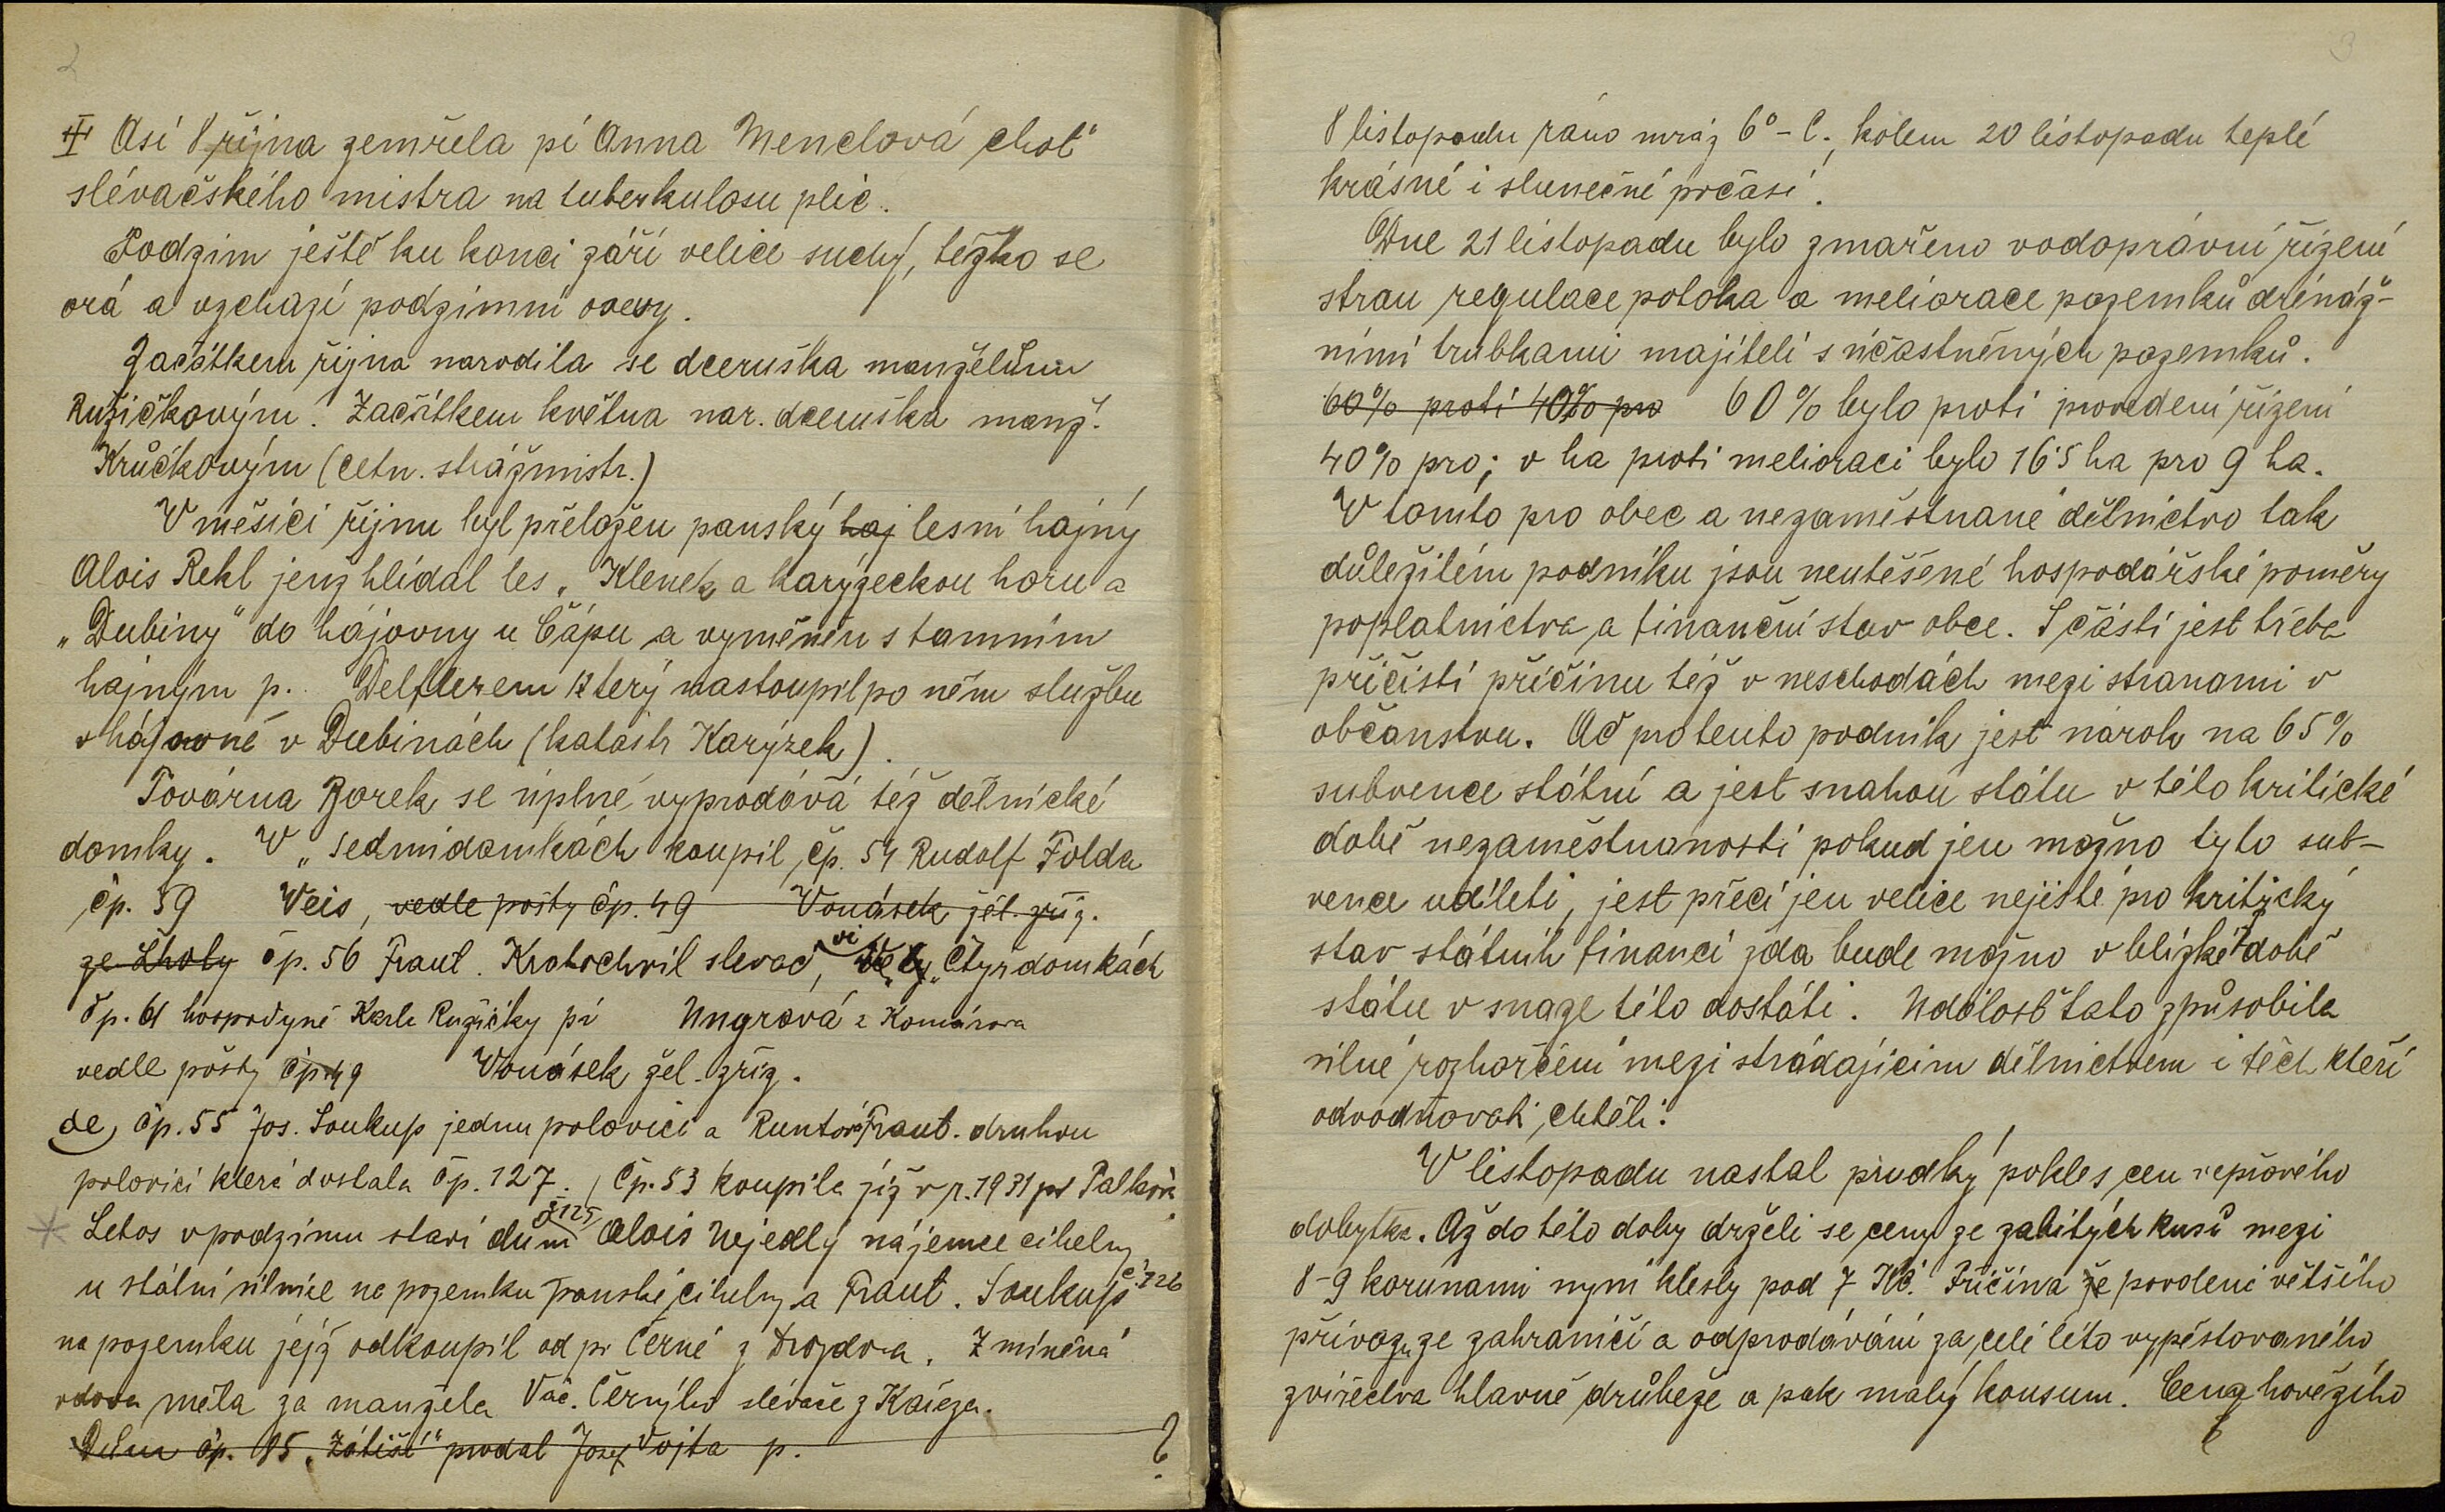 2
Asi 8 října zemřela pí Anna Menclová choť
slévačského mistra na tuberkulosu plic.
Podzim ještě ku konci září velice suchý, těžko se
orá a vzchazí podzimni osevy.
Začátkem října narodila se dceruška manželům
Ružičkovým. Začátkem května nar. dceruška manž.
Kručkovým (četn. strážmistr.)
V měsíci říjnu byl přeložen panský haj lesní hajný
Alois Rekl jenž hlídal les „Klenek a karýzeckou horu a
„Dubiny" do hájovny u Čápu a vyměněn s tamním
hajným p. Delflerem který nastoupil po něm službu
v hájovně v Dubinách (katastr Karýzek).
Továrna Borek se úplně vyprodává též dělnické
domky. V „sedmidomkách koupil čp. 54 Rudolf Folda
čp. 59 Weis, vedle pošty čp. 49 Vonásek žel. zříz.
ze Lhoty čp. 56 Frant. Kratochvil slevač, ve Čtyrdomkách
čp. 61 hospodyně Karla Ružičky pí Ungrová z Komárova
vedle pošty čp 49 Vonásek žel. zříz.
de, čp. 55 Jos. Soukup jednu polovici a Runtová Frant. druhou
polovici která dostala čp. 127. Čp. 53 koupila již v r. 1931 pí Palková
Letos v podzimu staví dům č 125 Alois Nejedlý nájemce cihelny
u státní silnice na pozemku panské cihelny a Frant. Soukup č. 126
na pozemku jejž odkoupil od pí Černé z Drozdova. Zmíněná
vdova měla za manžela Vác. Černýho slévače z Kařeza.
Dům čp. 85 „Zátiší" prodal Josef Vojta p. ?
3
8 listopadu ráno mráz 6° - C., kolem 20 listopadu teplé
krásné i slunečné počasí.
Dne 21 listopadu bylo zmařeno vodoprávní řízení
stran regulace potoka a meliorace pozemků drénáž-
ními trubkami majiteli súčastněných pozemků.
60% proti 40% pro 60% bylo proti provedení řízení
40% pro; v ha proti melioraci bylo 16·5 ha pro 9 ha.
V tomto pro obec a nezaměstnané dělnictvo tak
důležitém podniku jsou neutěšené hospodářské poměry
poplatnictva a finanční stav obce. S části jest třeba
přičísti příčinu též v neschodách mezi stranami v
občanstvu. Ač pro tento podnik jest nárok na 65%
subvence státní a jest snahou státu v této kritické
době nezaměstnanosti pokud jen možno tyto sub-
vence udíleti, jest přeci jen velice nejisté pro kritický
stav státních financí zda bude možno v blízké době
státu v snaze této dostáti. Událosť tato způsobila
silné rozhořčení mezi strádajícim dělnictvem i těch kteří
odvodňovati chtěli.
V listopadu nastal prudký pokles cen vepřového
dobytka. Až do této doby drželi se ceny ze zabitých kusů mezi
8-9 korunami nyní klesly pod 7 Kč. Příčina že povolení většího
přívozu ze zahraničí a odprodávání za celé léto vypěstovaného
zvířectva hlavně drůbeže a pak malý konsum. Cena hovězího